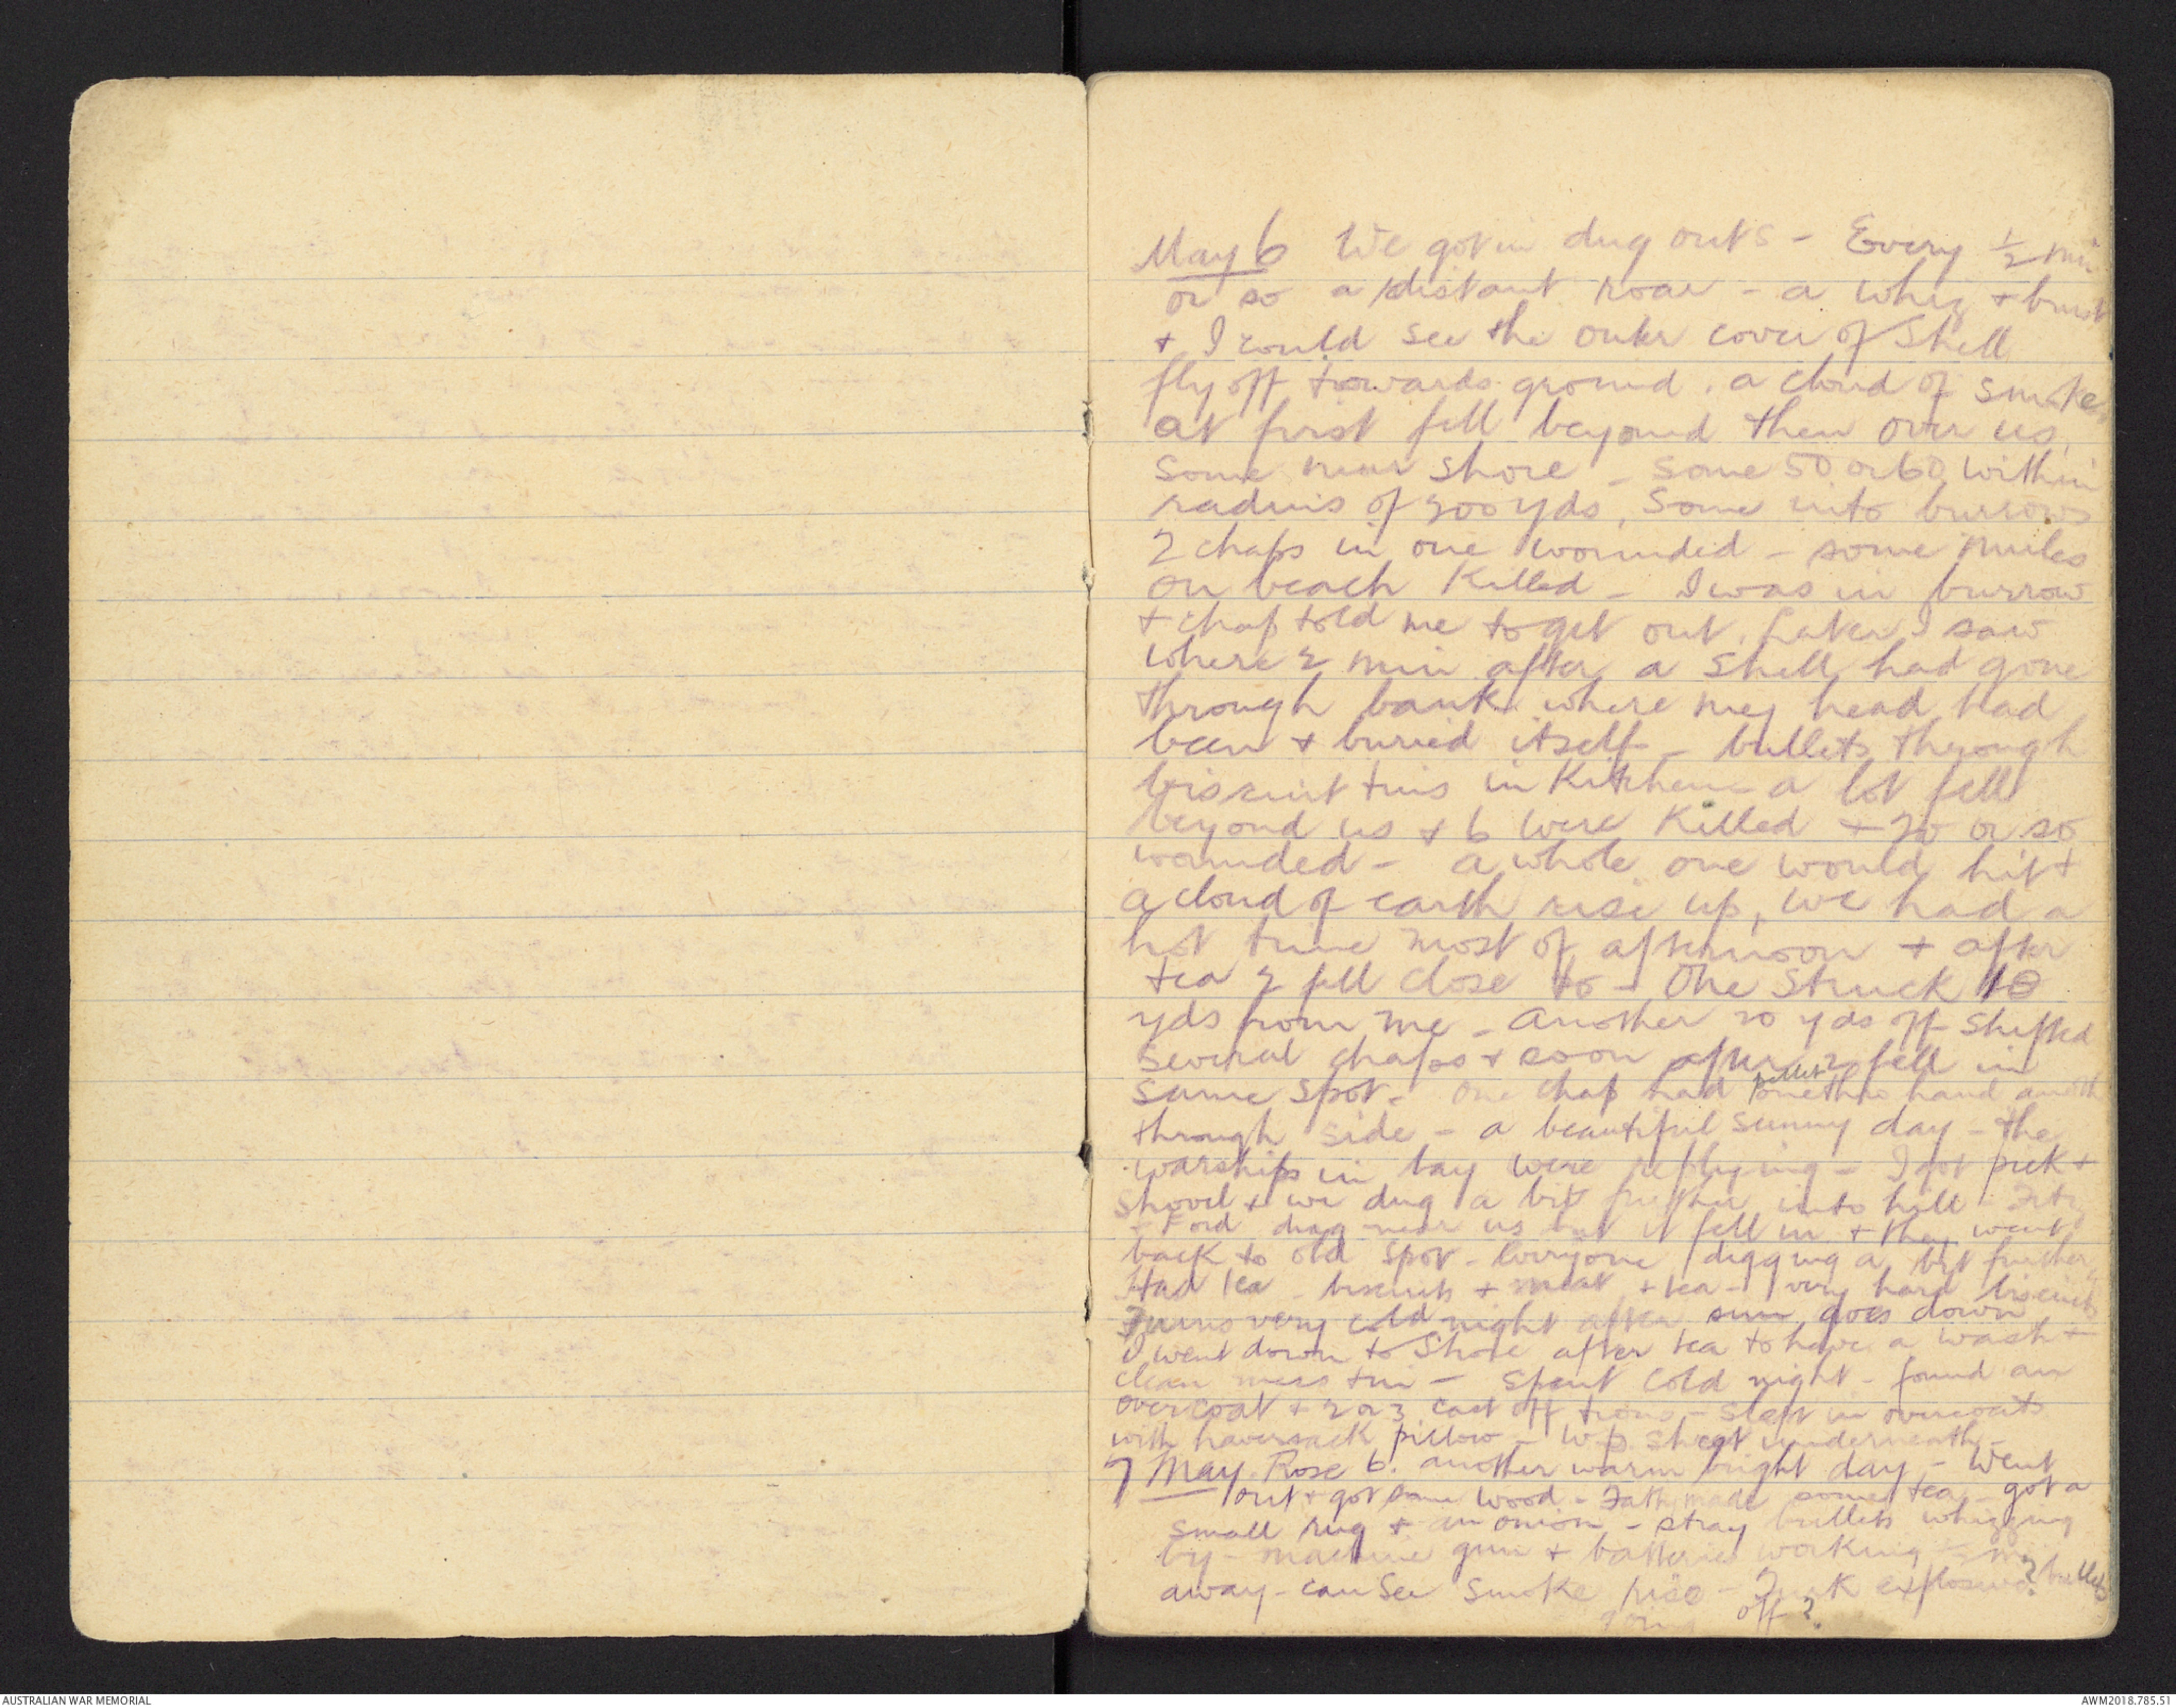 May 6 We got in dug outs - Every ½ min
or so a distant roar - a whiz + burst
+ I could see the outer cover of shell
fly off towards ground. a cloud of smoke
at first fell beyond then over us,
some near shore - some 50 or 60 within
radius of 300 yds, Some into burrows
2 chaps in one wounded - some mules
on beach killed - I was in burrow
+ chap told me to get out. Later I saw
where 2 min after a shell had gone
through bank where my head had
been + buried itself - bullets through
biscuit tins in Kitchen - a lot fell
beyond us + 6 were killed + 20 or so
wounded - a whole one would hit +
a cloud of earth rise up, we had a
hot time most of afternoon + after
tea 2 fell close to - One struck 10
yds from me - another 20 yds off shifted
several chaps + soon after 2 fell in
same spot - one chap had pellet one thro hand another
through side - a beautiful sunny day - the
warships in bay were replying - I got pick +
shovel + we dug a bit further into hill
- Ford drag near us but it fell in + they went
back to old spot - Everyone digging a bit further,
Had tea - biscuits + meat + tea - very hard biscuits
Turns very cold night after sun goes down
I went down to Shore after tea to have a wash +
clean mess tin - spent cold night - found an
overcoat + 2 or 3 cast off - slept in overcoats
with haversack pillow - W.p. sheet underneath -
7 May. Rose 6. another warm bright day - Went
out + got some wood - made some tea - got a
small rug + an onion - stray bullets whizzing
by - machine gun + batteries working
away - can see smoke rise - explosive ? bullets
going off ?
AUSTRALIAN WAR MEMORIAL
AWM2018.785.51